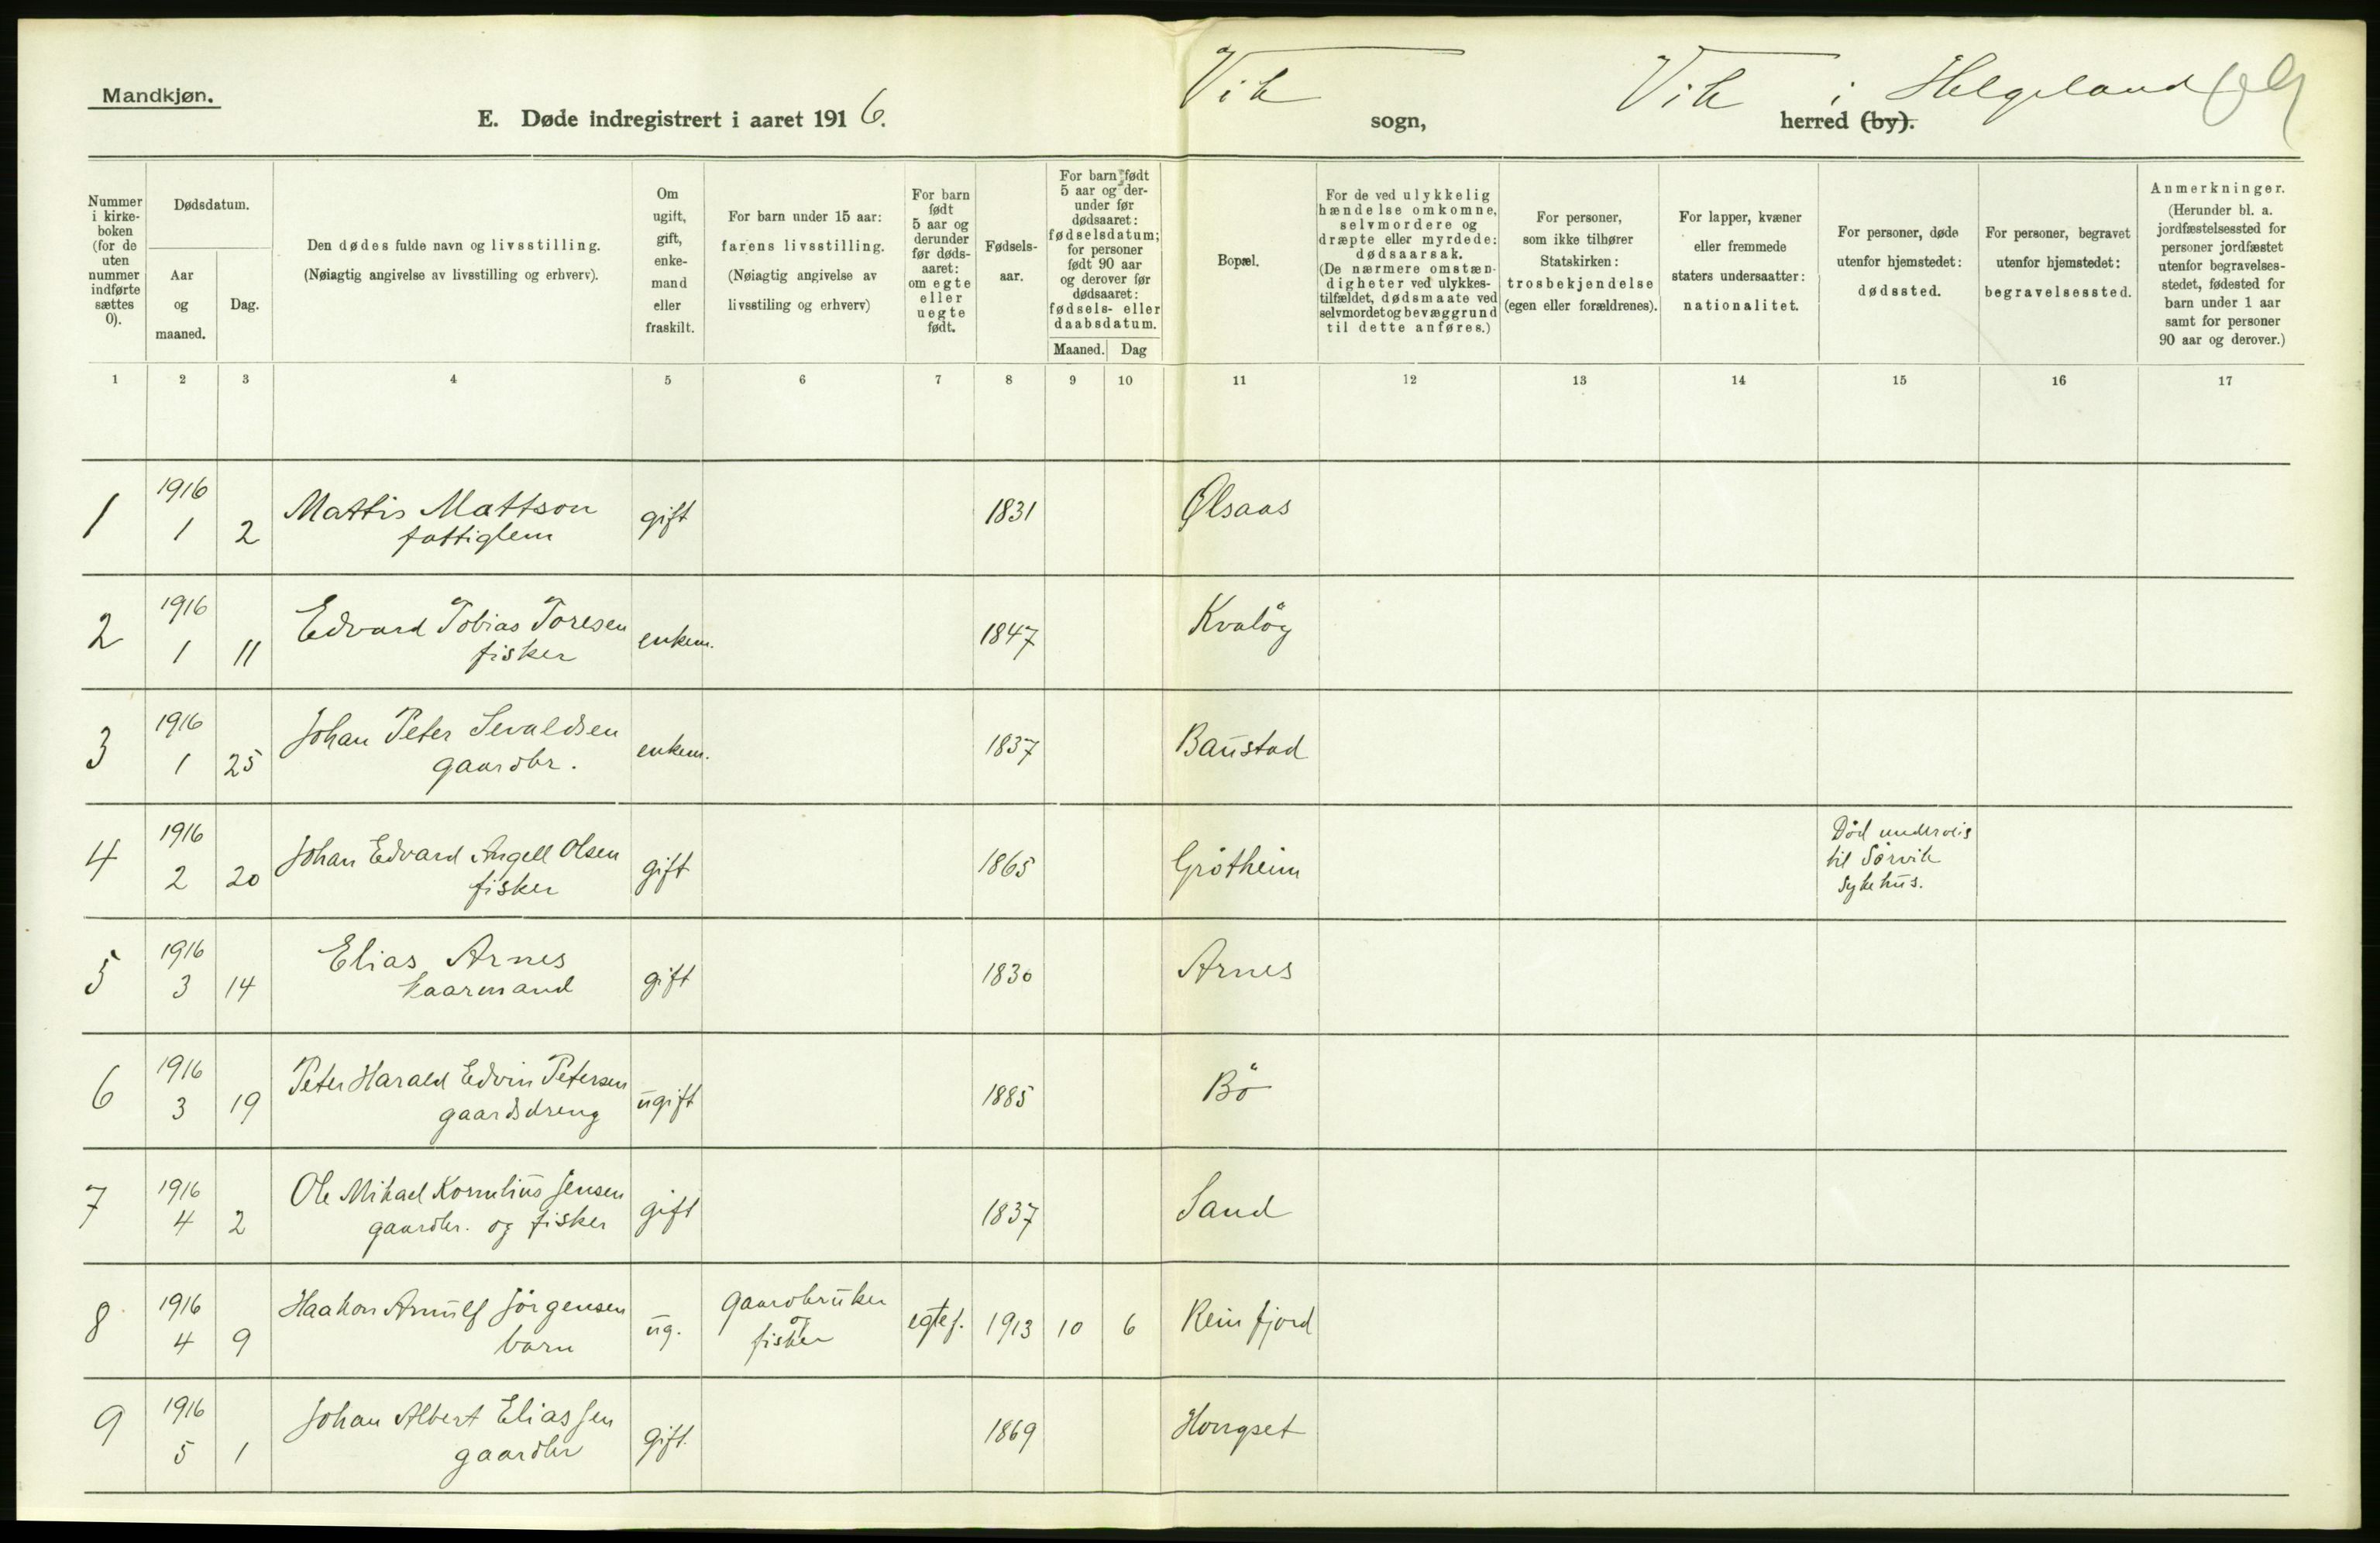 Mandkjøn.
E. Døde indregistrert i aaret 1916.
Vik sogn,
Vik i Helgeland herred (by).
Nummer i kirke-boken (for de uten nummer indførte sættes 0).
Dødsdatum.
Aar og maaned.
Dag.
Den dødes fulde navn og livsstilling.
(Nøiagtig angivelse av livsstilling og erhverv).
Om ugift, gift, enke-mand eller fraskilt.
For barn under 15 aar:
farens livsstilling.
(Nøiagtig angivelse av livsstiling og erhverv)
For barn født 5 aar og derunder før døds-aaret: om egte eller uegte født.
Fødsels-aar.
For barn født 5 aar og der-under før dødsaaret: fødselsdatum; for personer født 90 aar og derover før dødsaaret: fødsels- eller daabsdatum.
Maaned. Dag
Bopæl.
For de ved ulykkelig hændelse omkomne, selvmordere og dræpte eller myrdede: dødsaarsak.
(De nærmere omstæn-digheter ved ulykkes-tilfældet, dødsmaate ved selvmordet og bevæggrund til dette anføres.)
For personer, som ikke tilhører Statskirken: trosbekjendelse (egen eller forældrenes).
For lapper, kvæner eller fremmede staters undersaatter: nationalitet.
For personer, døde utenfor hjemstedet: dødssted.
For personer, begravet utenfor hjemstedet: begravelsessted.
Anmerkninger.
(Herunder bl. a. jordfæstelsessted for personer jordfæstet utenfor begravelses-stedet, fødested for barn under 1 aar samt for personer 90 aar og derover.)
1 2 3 4 5 6 7 8 9 10 11 12 13 14 15 16 17
1 1916 1 2 Mattis Mattson fattiglem gift 1831 Ølsaas
2 1916 1 11 Edvard Tobias Toresen fisker enkem. 1847 Kvaløy
3 1916 1 25 Johan Peter Sevaldsen gaardbr. enkem. 1837 Baustad
4 1916 2 20 Johan Edvard Angell Olsen fisker gift 1865 Grøtheim Död underveis til Sørvik sykehus.
5 1916 3 14 Elias Arnes kaarmand gift 1830 Arnes
6 1916 3 19 Peter Harald Edvin Petersen gaardsdreng ugift 1885 Bö
7 1916 4 2 Ole Mikael Kornelius Jensen gaardbr. og fisker gift 1837 Sand
8 1916 4 9 Haakon Arnulf Jörgensen barn ug. gaardbruker og fisker egtef. 1913 10 6 Reinfjord
9 1916 5 1 Johan Albert Eliassen gaardbr gift. 1869 Horgset